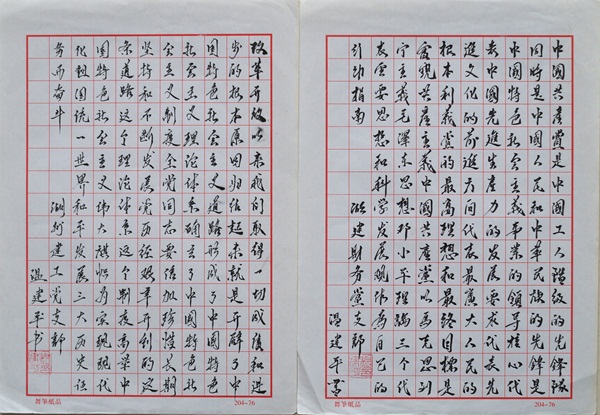 中國共產黨是中國工人階級的先鋒隊
同時是中國人民和中華民族的先鋒是
中國特色社會主義事業的領導核心代
表中國先進生產力的發展要求代表先
進文化的前進方向代表最廣大人民的
根本利益黨的最高理想和最終目標是
實現共產主義中國共產黨以馬克思列
寧主義毛澤東思想鄧小平理論三個代
表重要思想和科學發展觀作為自己的
行動指南
建財務黨支部
溫建平書
舞筆紙品 204-76
改革開放以來我們取得一切成績和進
步的根本原因歸結起來就是開辟了中
國特色社會主義道路形成了中國特色
社會主義理論體系確立了中國特色
社會主義制度全黨同志要倍加珍惜長期
堅持和不斷發展黨歷經艱辛開創的這
條道路這個理論體系這個制度高舉中
國特色社會主義偉大旗幟為實現現代
化祖國統一世界和平發展三大歷史任
務而奮鬥
浙江建工黨支部
溫建平書
舞筆紙品 204-76